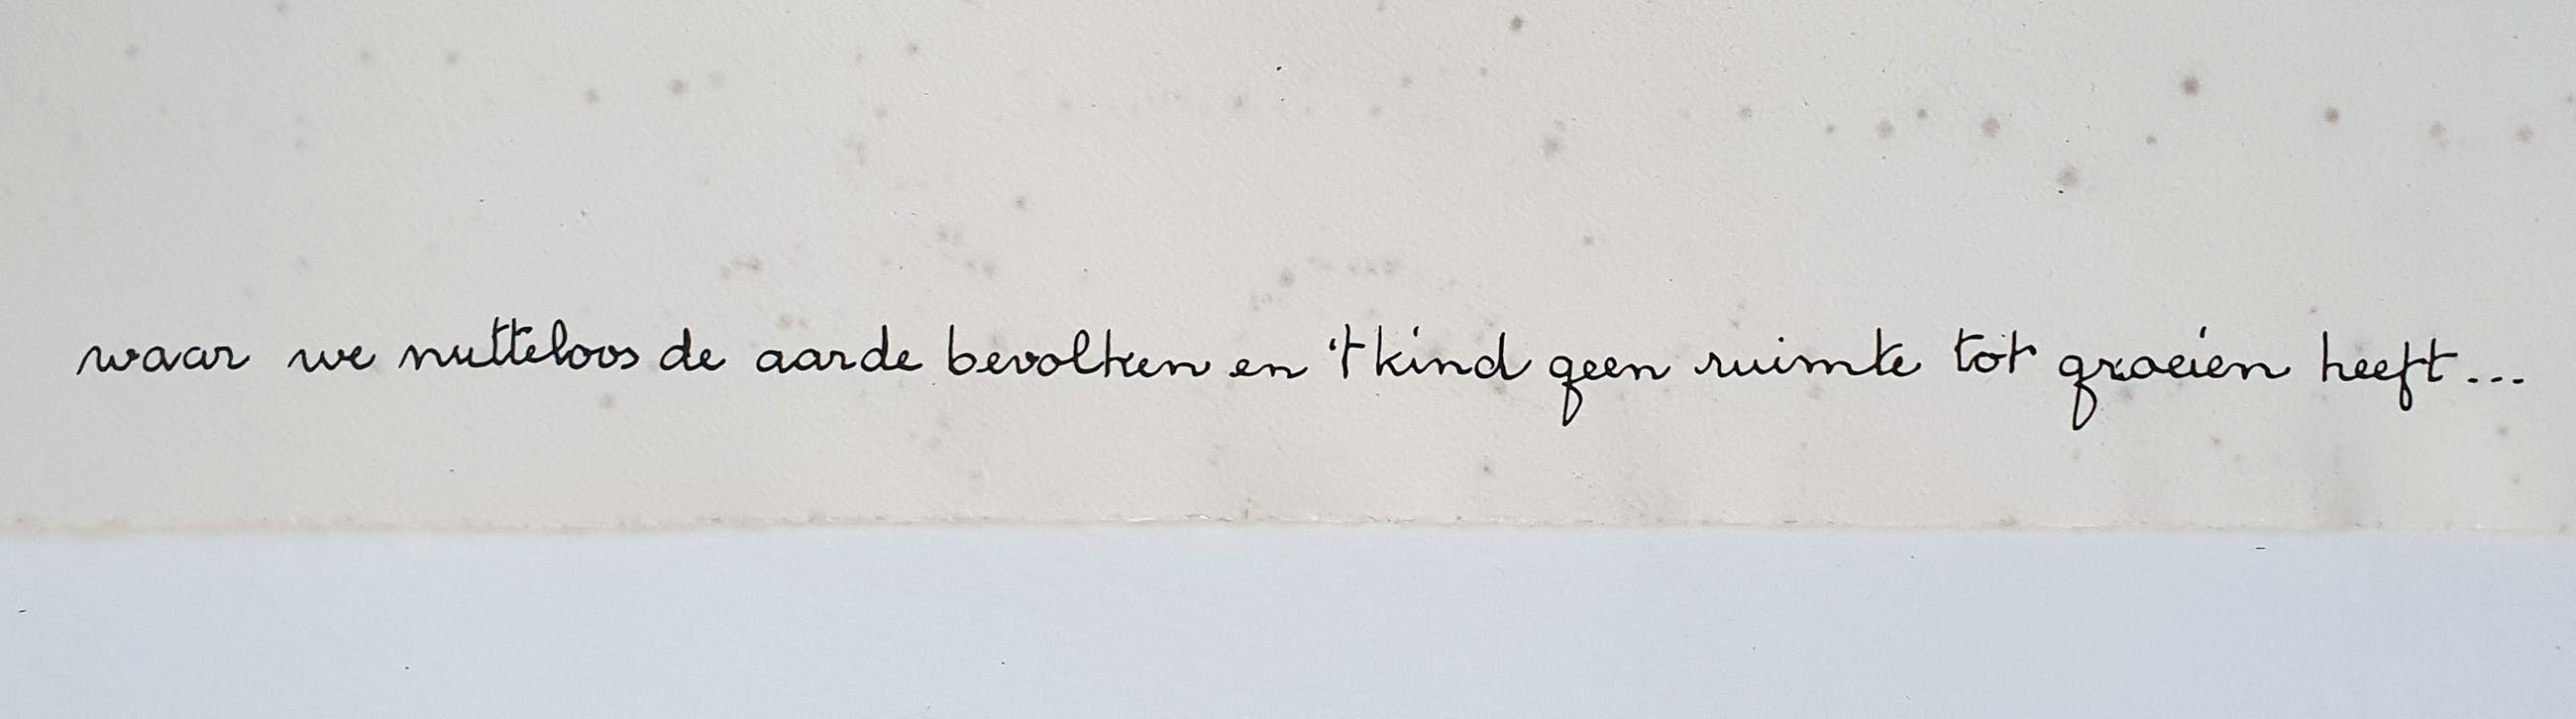 waar we nutteloos de aarde bevolken en 't kind geen ruimte tot groeien heeft...